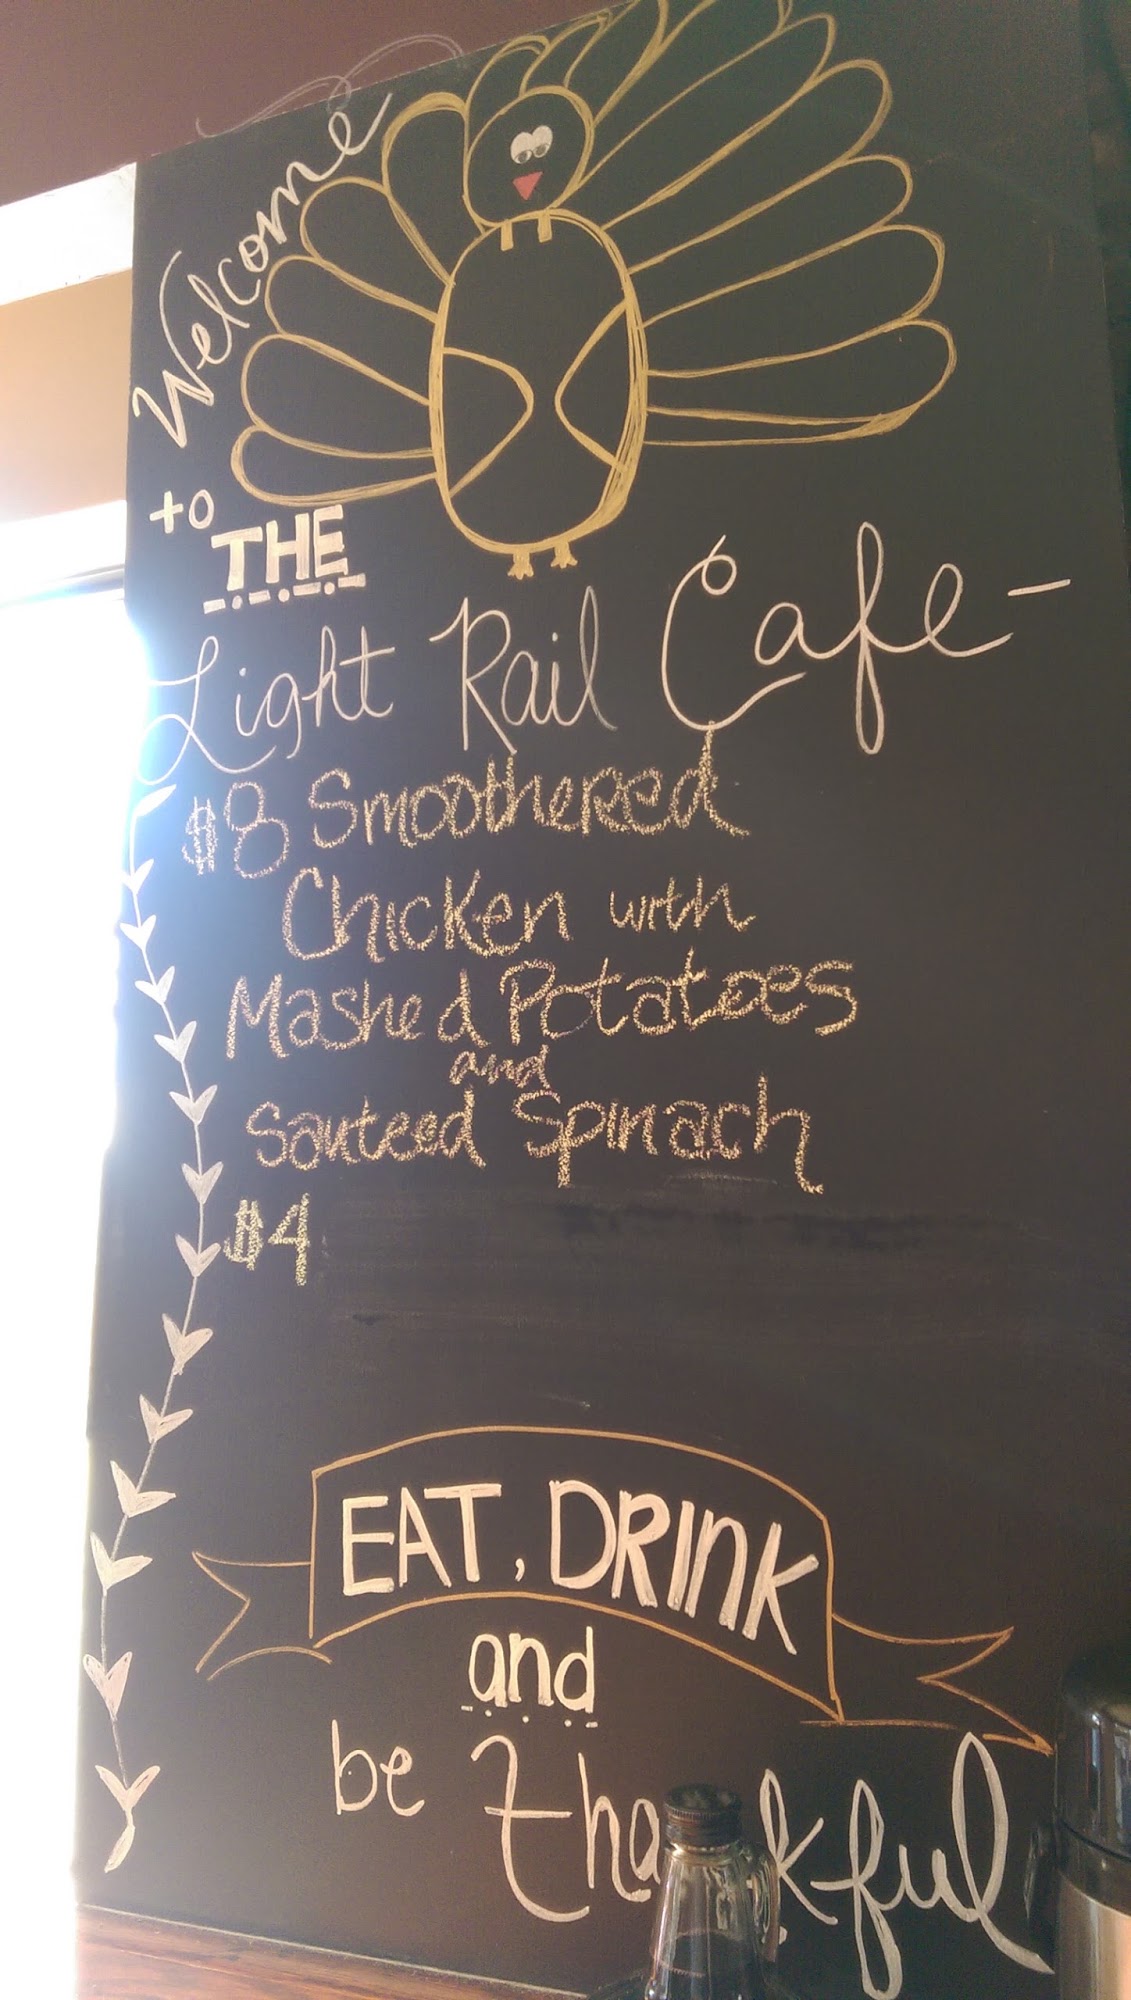 Welcome
to
THE
Light Rail Cafe-
$8 Smothered
Chicken with
Mashed Potatoes
and
Sauteed Spinach
$4
EAT, DRINK
and
be Thankful